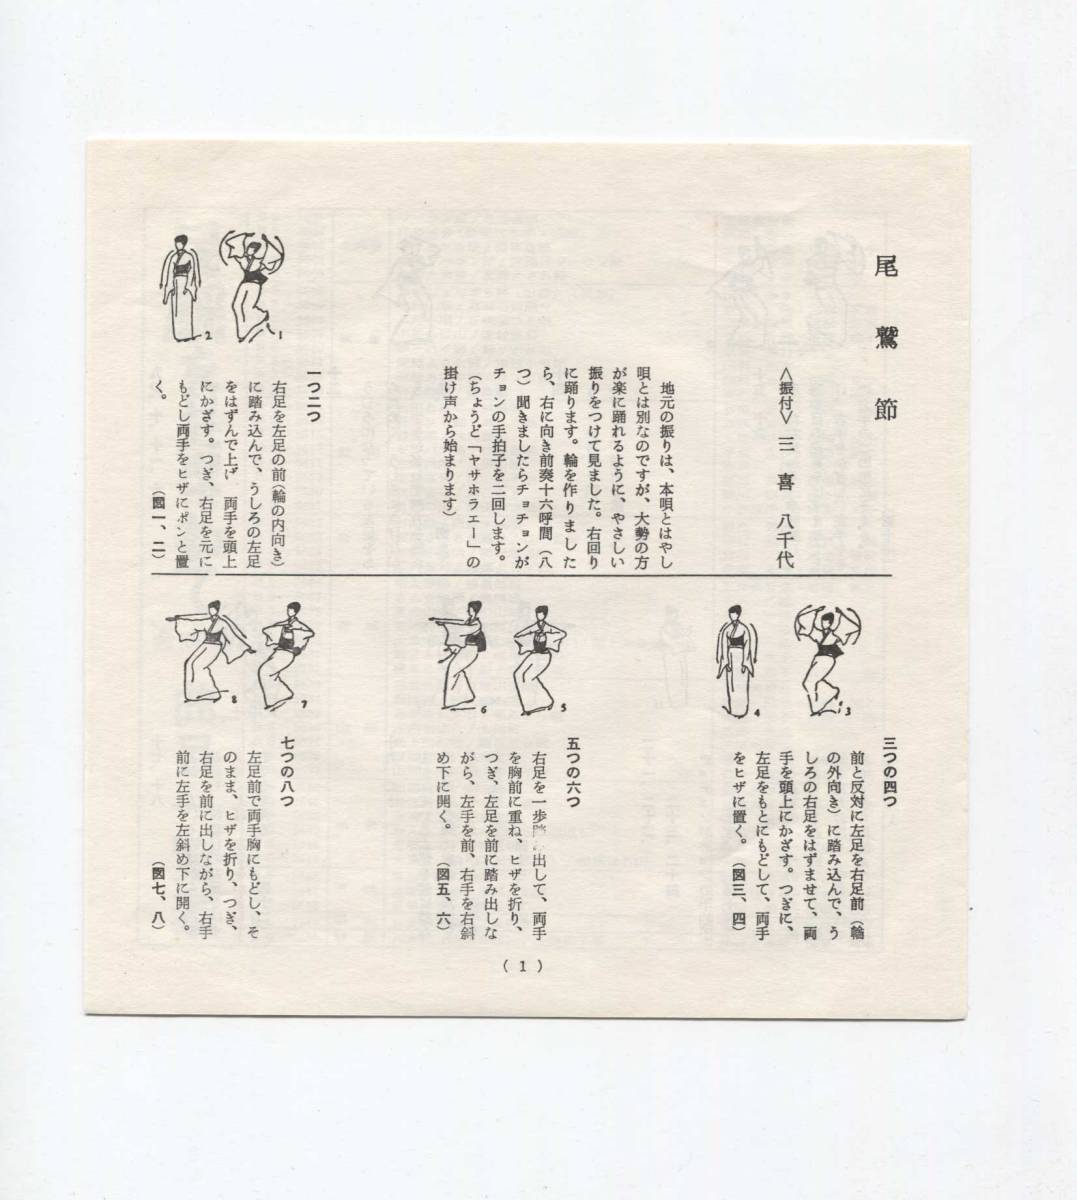 尾鷲節
＜振付＞三喜八千代
地元の振りは、本唄とはやし
唄とは別なのですが、大勢の方
が楽に踊れるように、やさしい
振りをつけて見ました。右回り
に踊ります。輪を作りました
ら、右に向き前奏十六呼間（八
つ）聞きましたらチョチョンが
チョンの手拍子を二回します。
（ちょうど「ヤサホラエー」の
掛け声から始まります）
1
2
一つ二つ
右足を左足の前（輪の内向き）
に踏み込んで、うしろの左足
をはずんで上げ　両手を頭上
にかざす。つぎ、右足を元に
もどし両手をヒザにポンと置
く。　（図一、二）
3
4
三つの四つ
前と反対に左足を右足前（輪
の外向き）に踏み込んで、う
しろの右足をはずませて、両
手を頭上にかざす。つぎに、
左足をもとにもどして、両手
をヒザに置く。（図三、四）
5
6
五つの六つ
右足を一歩踏み出して、両手
を胸前に重ね、ヒザを折り、
つぎ、左足を前に踏み出しな
がら、左手を前、右手を右斜
め下に開く。（図五、六）
7
8
七つの八つ
左足前で両手胸にもどし、そ
のまま、ヒザを折り、つぎ、
右足を前に出しながら、右手
前に左手を左斜め下に開く。
（図七、八）
（1）